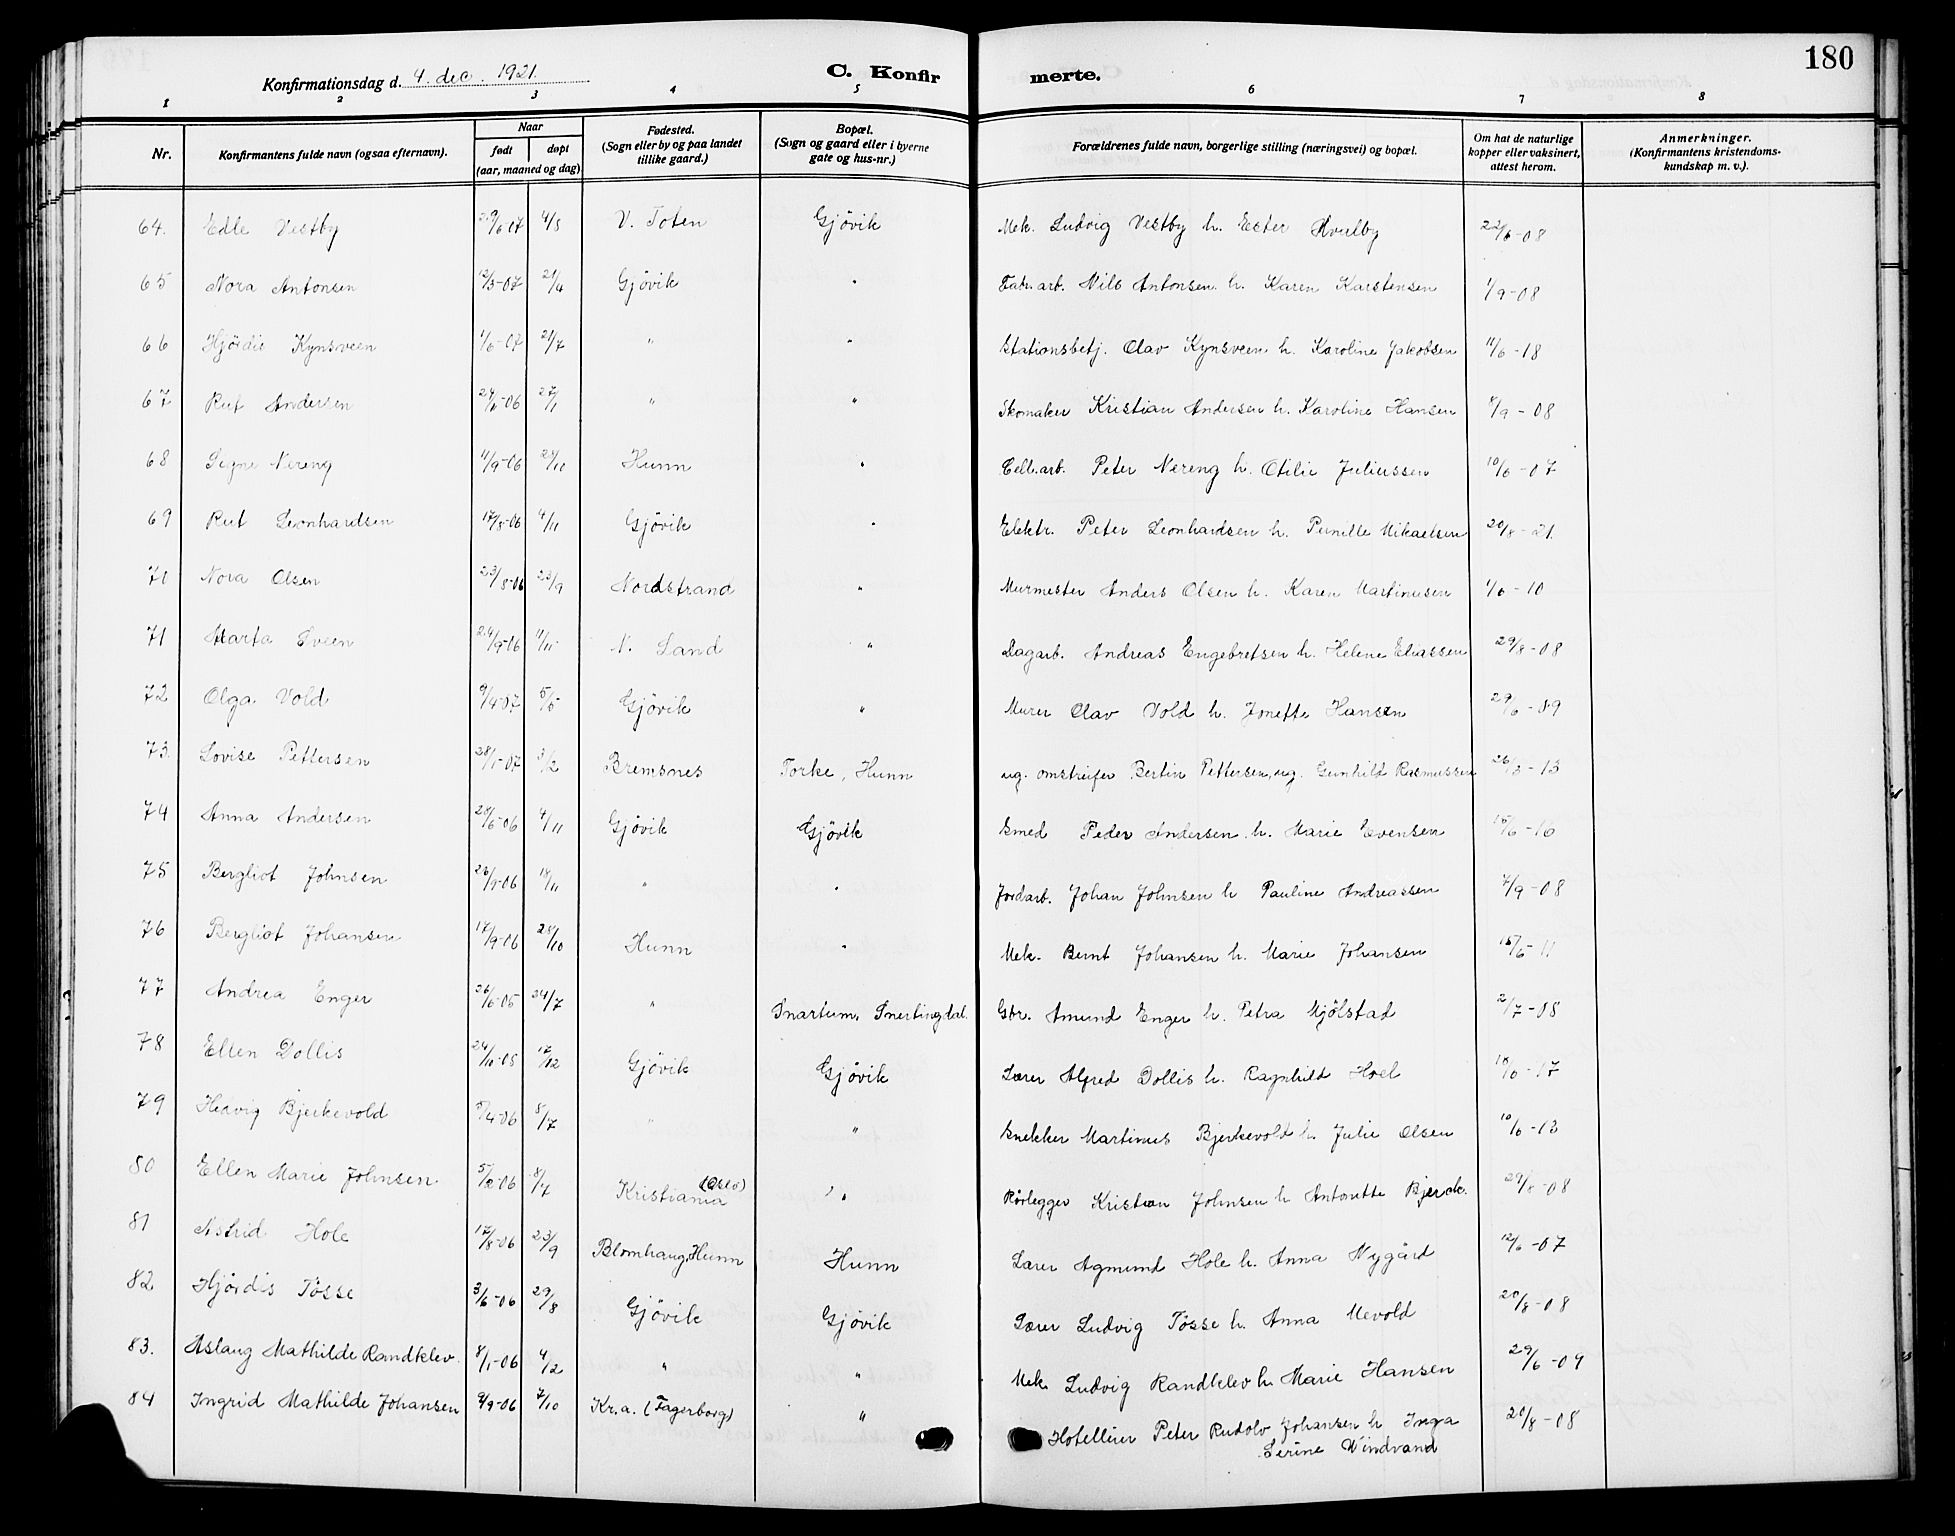 180
Konfirmationsdag d. 4. dec. 1921.
C. Konfirmerte.
1 2 3 4 5 6 7 8
Nr. Konfirmantens fulde navn (ogsaa efternavn). Naar født døpt (aar, maaned og dag) Fødested. (Sogn eller by og paa landet tillike gaard.) Bopæl. (Sogn og gaard eller i byerne gate og hus-nr.) Forældrenes fulde navn, borgerlige stilling (næringsvei) og bopæl. Om hat de naturlige kopper eller vaksinert, attest herom. Anmerkninger. (Konfirmantens kristendomskundskap m. v.).
64. Edle Vestby 29/6-07 4/8 V. Toten Gjövik Mek. Ludvig Vestby h. Ester Hvulby 22/6-08
65 Nora Antonsen 12/3-07 21/4 Gjövik " Fabr.arb. Nils Antonsen h. Karen Karstensen 1/9-08
66 Hjördis Kynsveen 1/6-07 21/7 " " Stationsbetj. Olav Kynsveen h. Karoline Jakobsen 11/6-18
67 Rut Andersen 27/1 " " Skomaker Kristian Andersen h. Karoline Hansen 1/9-08
68 Signe Nereng 11/9-06 21/10 Hunn " Cell.arb. Peter Nereng h. Otilie Juliussen 10/6-07
69 Rut Leonhardsen 17/8-06 4/11 Gjövik " Elektr. Peter Leonhardsen h. Pernille Mikaelsen 20/8-21.
71 Nora Olsen 23/8-06 23/9 Nordstrand " Murmester Anders Olsen h. Karen Martinusen 1/6-10
71 Marta Sveen 24/9-06 11/11 N. Land " Dagarb. Andreas Engebretsen h. Helene Eliassen 29/8-08
72 Olga Vold 9/4-07 5/5 Gjövik " Murer Olav Vold h. Jonette Hansen 29/6-89
73. Lovise Pettersen 28/1-07 3/2 Bremsnes Torke, Hunn ug. omstreifer Bertin Pettersen, ug. Gunhild Rasmussen 26/3-13
74 Anna Andersen 28/6-06 4/11 Gjövik Gjövik Smed Peder Andersen h. Marie Evensen 15/6-16
75 Bergliot Johnsen 26/9-06 18/11 " " Jordarb. Johan Johnsen h Pauline Andreassen 7/9-08
76 Bergliot Johansen 17/9-06 28/10 Hunn " Mek. Bernt Johansen h. Marie Johansen 15/6-11
77 Andrea Enger 26/6-05 24/7 " Snartum, Snertingdal. Gbr. Amund Enger h. Petra Mjölstad 2/7-08
78 Ellen Dollis 24/10-05 17/12 Gjövik Gjövik Lærer Alfred Dollis h. Ragnhild Hoel 18/6-17
79 Hedvig Bjerkevold 5/4-06 8/7 " " Snekker Martinus Bjerkevold h. Julie Olsen 10/6-13
80 Ellen Marie Johnsen. 5/2-06 8/7 Kristiania (Oslo) " Rörlegger Kristian Johnsen h Antonette Bjerck. 29/8-08
81 Astrid Hole 17/8-06 23/9 Blomhaug, Hunn Hunn Lærer Agmund Hole h. Anna Nygård 12/6-07
82 Hjördis Tösse 3/6-06 29/8 Gjövik Gjövik Lærer Ludvig Tösse h. Anna Mevold 20/8-08
83. Aslaug Mathilde Randklev. 8/1-06 4/2 " " Mek. Ludvig Randklev h. Marie Hansen 29/6-09
84 Ingrid Mathilde Johansen 9/9-06 7/10 Kr.a. (Fagerborg) " Hotelleier Peter Rudolv Johansen h Inga
Serine Windvand 20/8-08